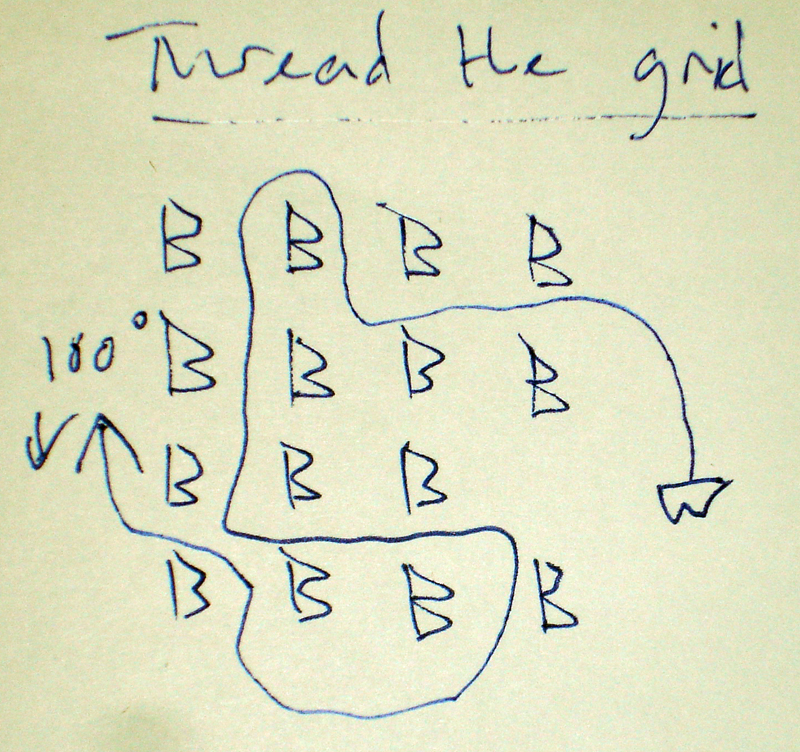 Thread the grid
B B B B
180° B B B B
B B B
B B B B